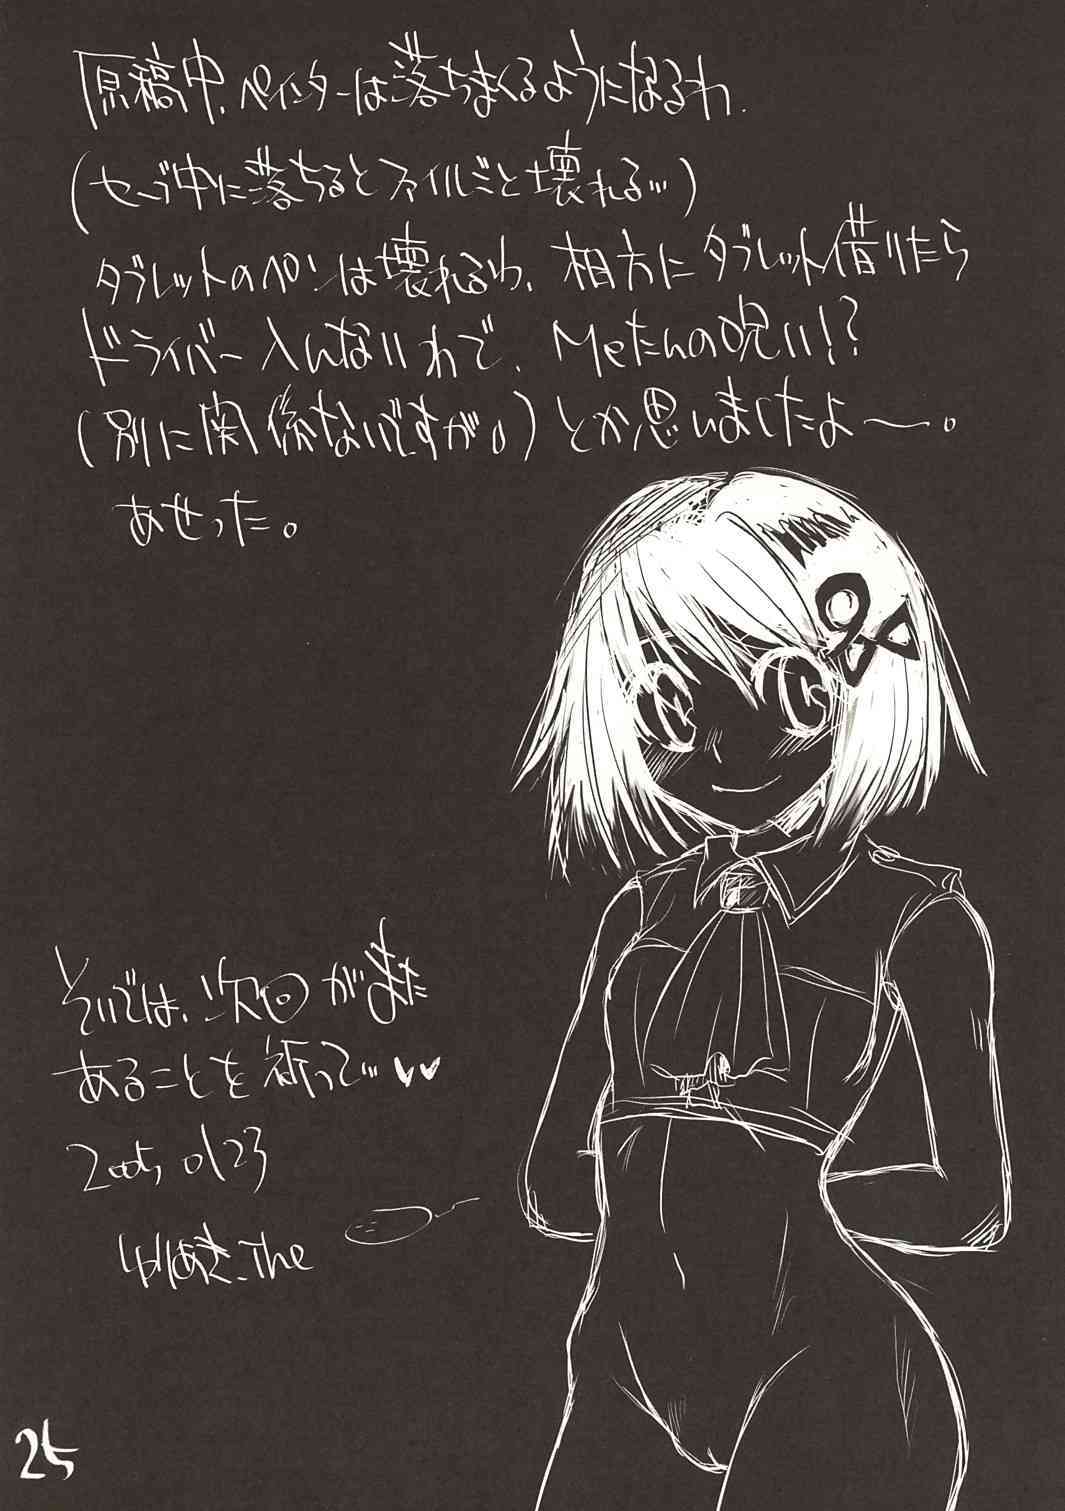 原稿中、ペインターは落ちまくるようになるわ、
(セーブ中に落ちるとファイルごと壊れる…)
タブレットのペンは壊れるわ、相方にタブレット借りたら
ドライバー入んないわで、Meたんの呪い!?
(別に関係ないですが。)とか思いましたよ〜。
あせった。
そいでは、次回がまた
あることを祈って…♥♥
2005 0123
ゆりあき、The
25